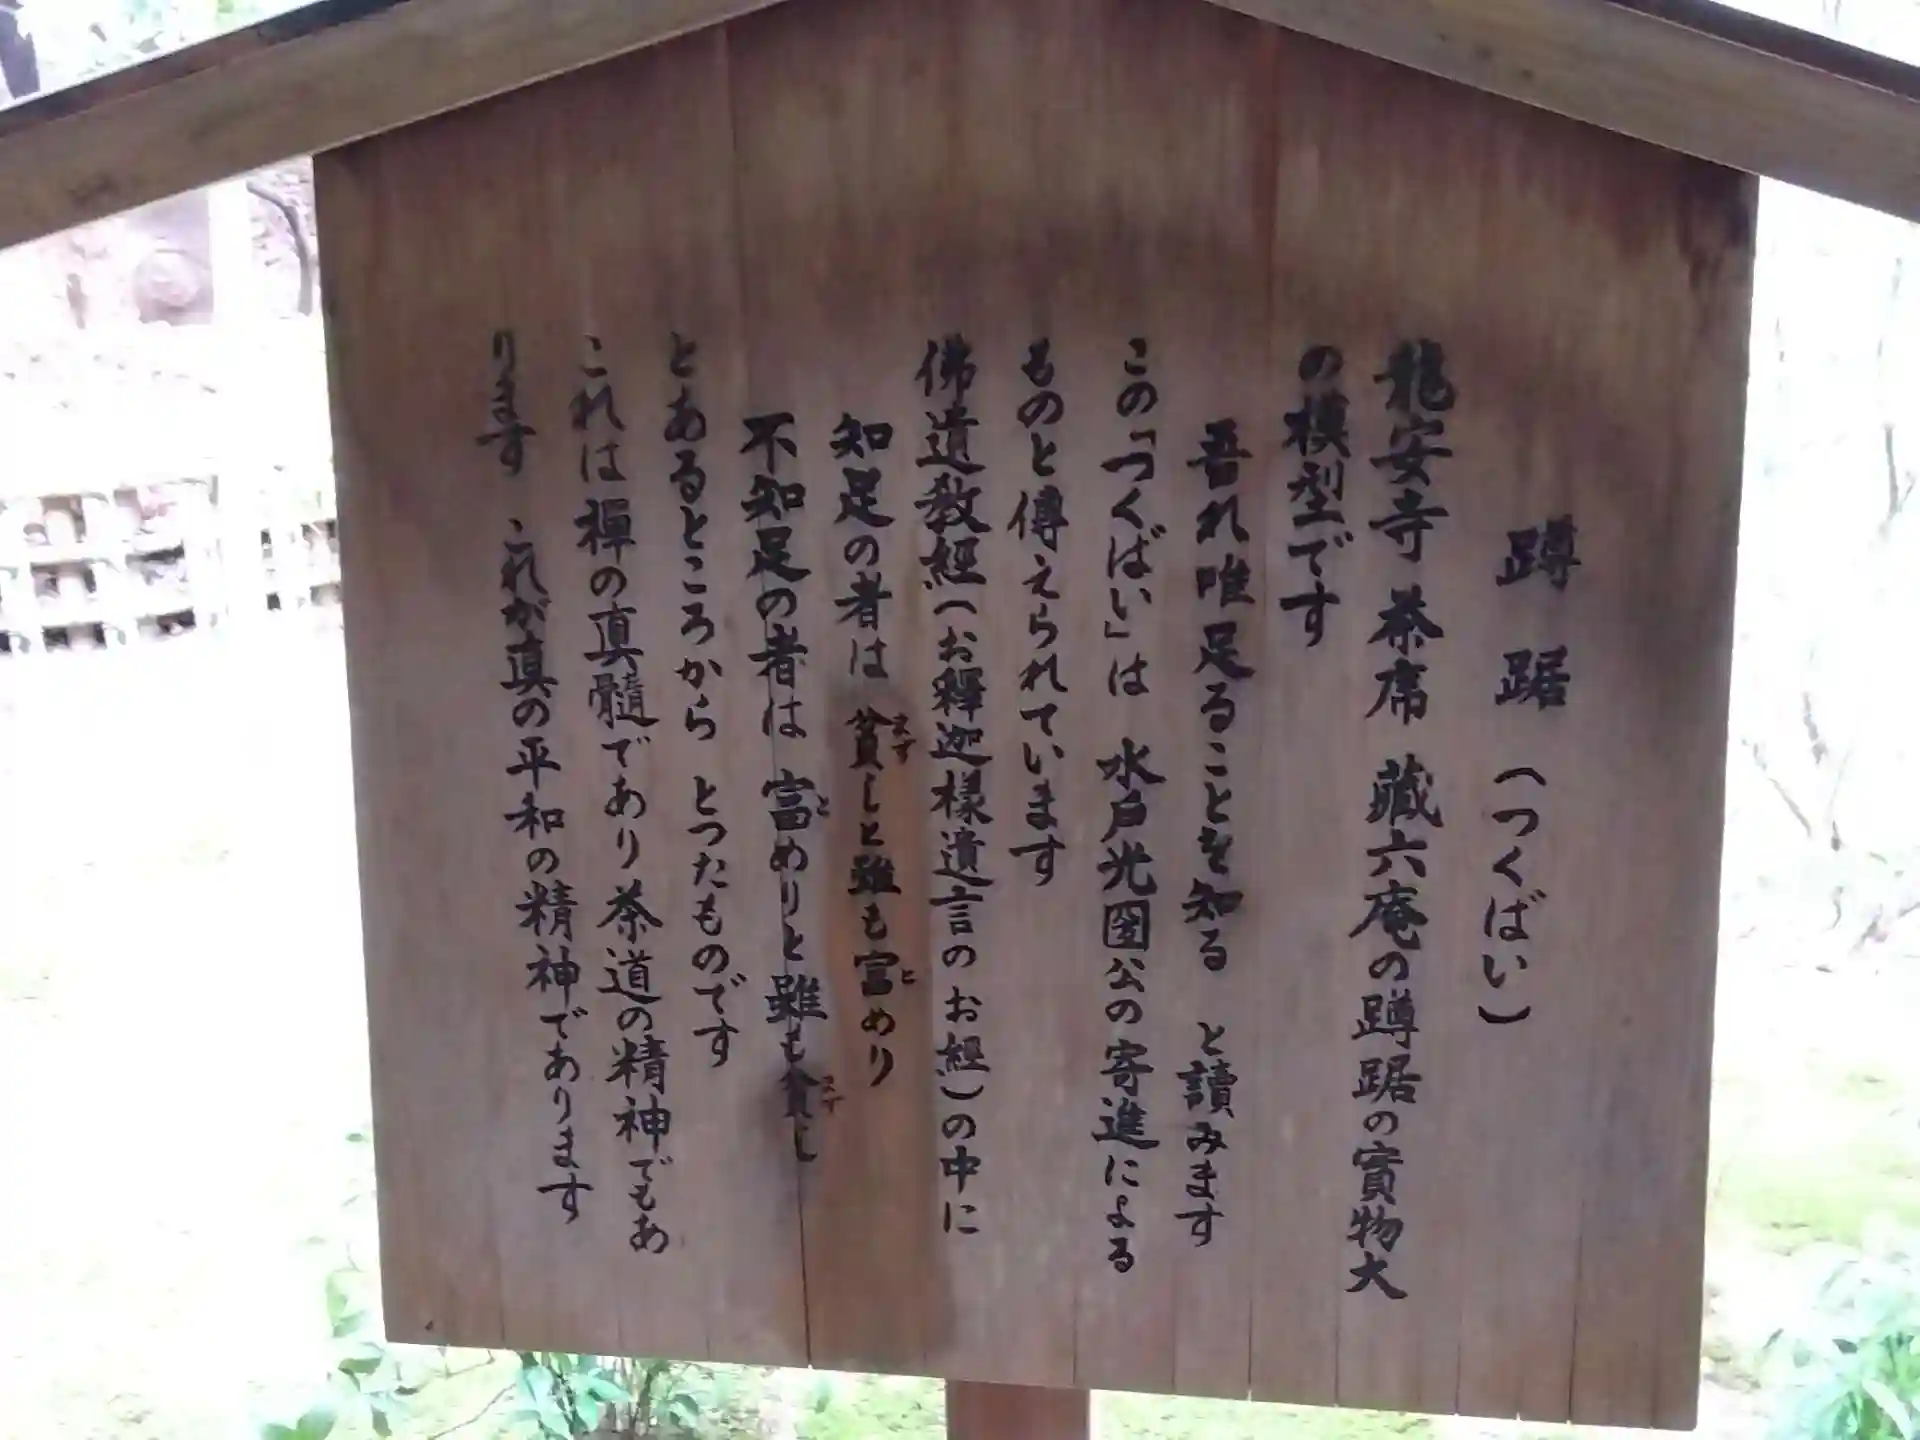 蹲踞(つくばい)
龍安寺 茶席 蔵六庵の蹲踞の實物大
の模型です
吾れ唯足ることを知る と讀みます
この「つくばい」は 水戸光圀公の寄進による
ものと傳えられています
佛遺教經(お釋迦様遺言のお經)の中に
知足の者は 貧しと雖も富めり
不知足の者は 富めりと雖も貧し
とあるところから とつたものです
これは禅の真髓であり茶道の精神でもあ
ります これが真の平和の精神であります